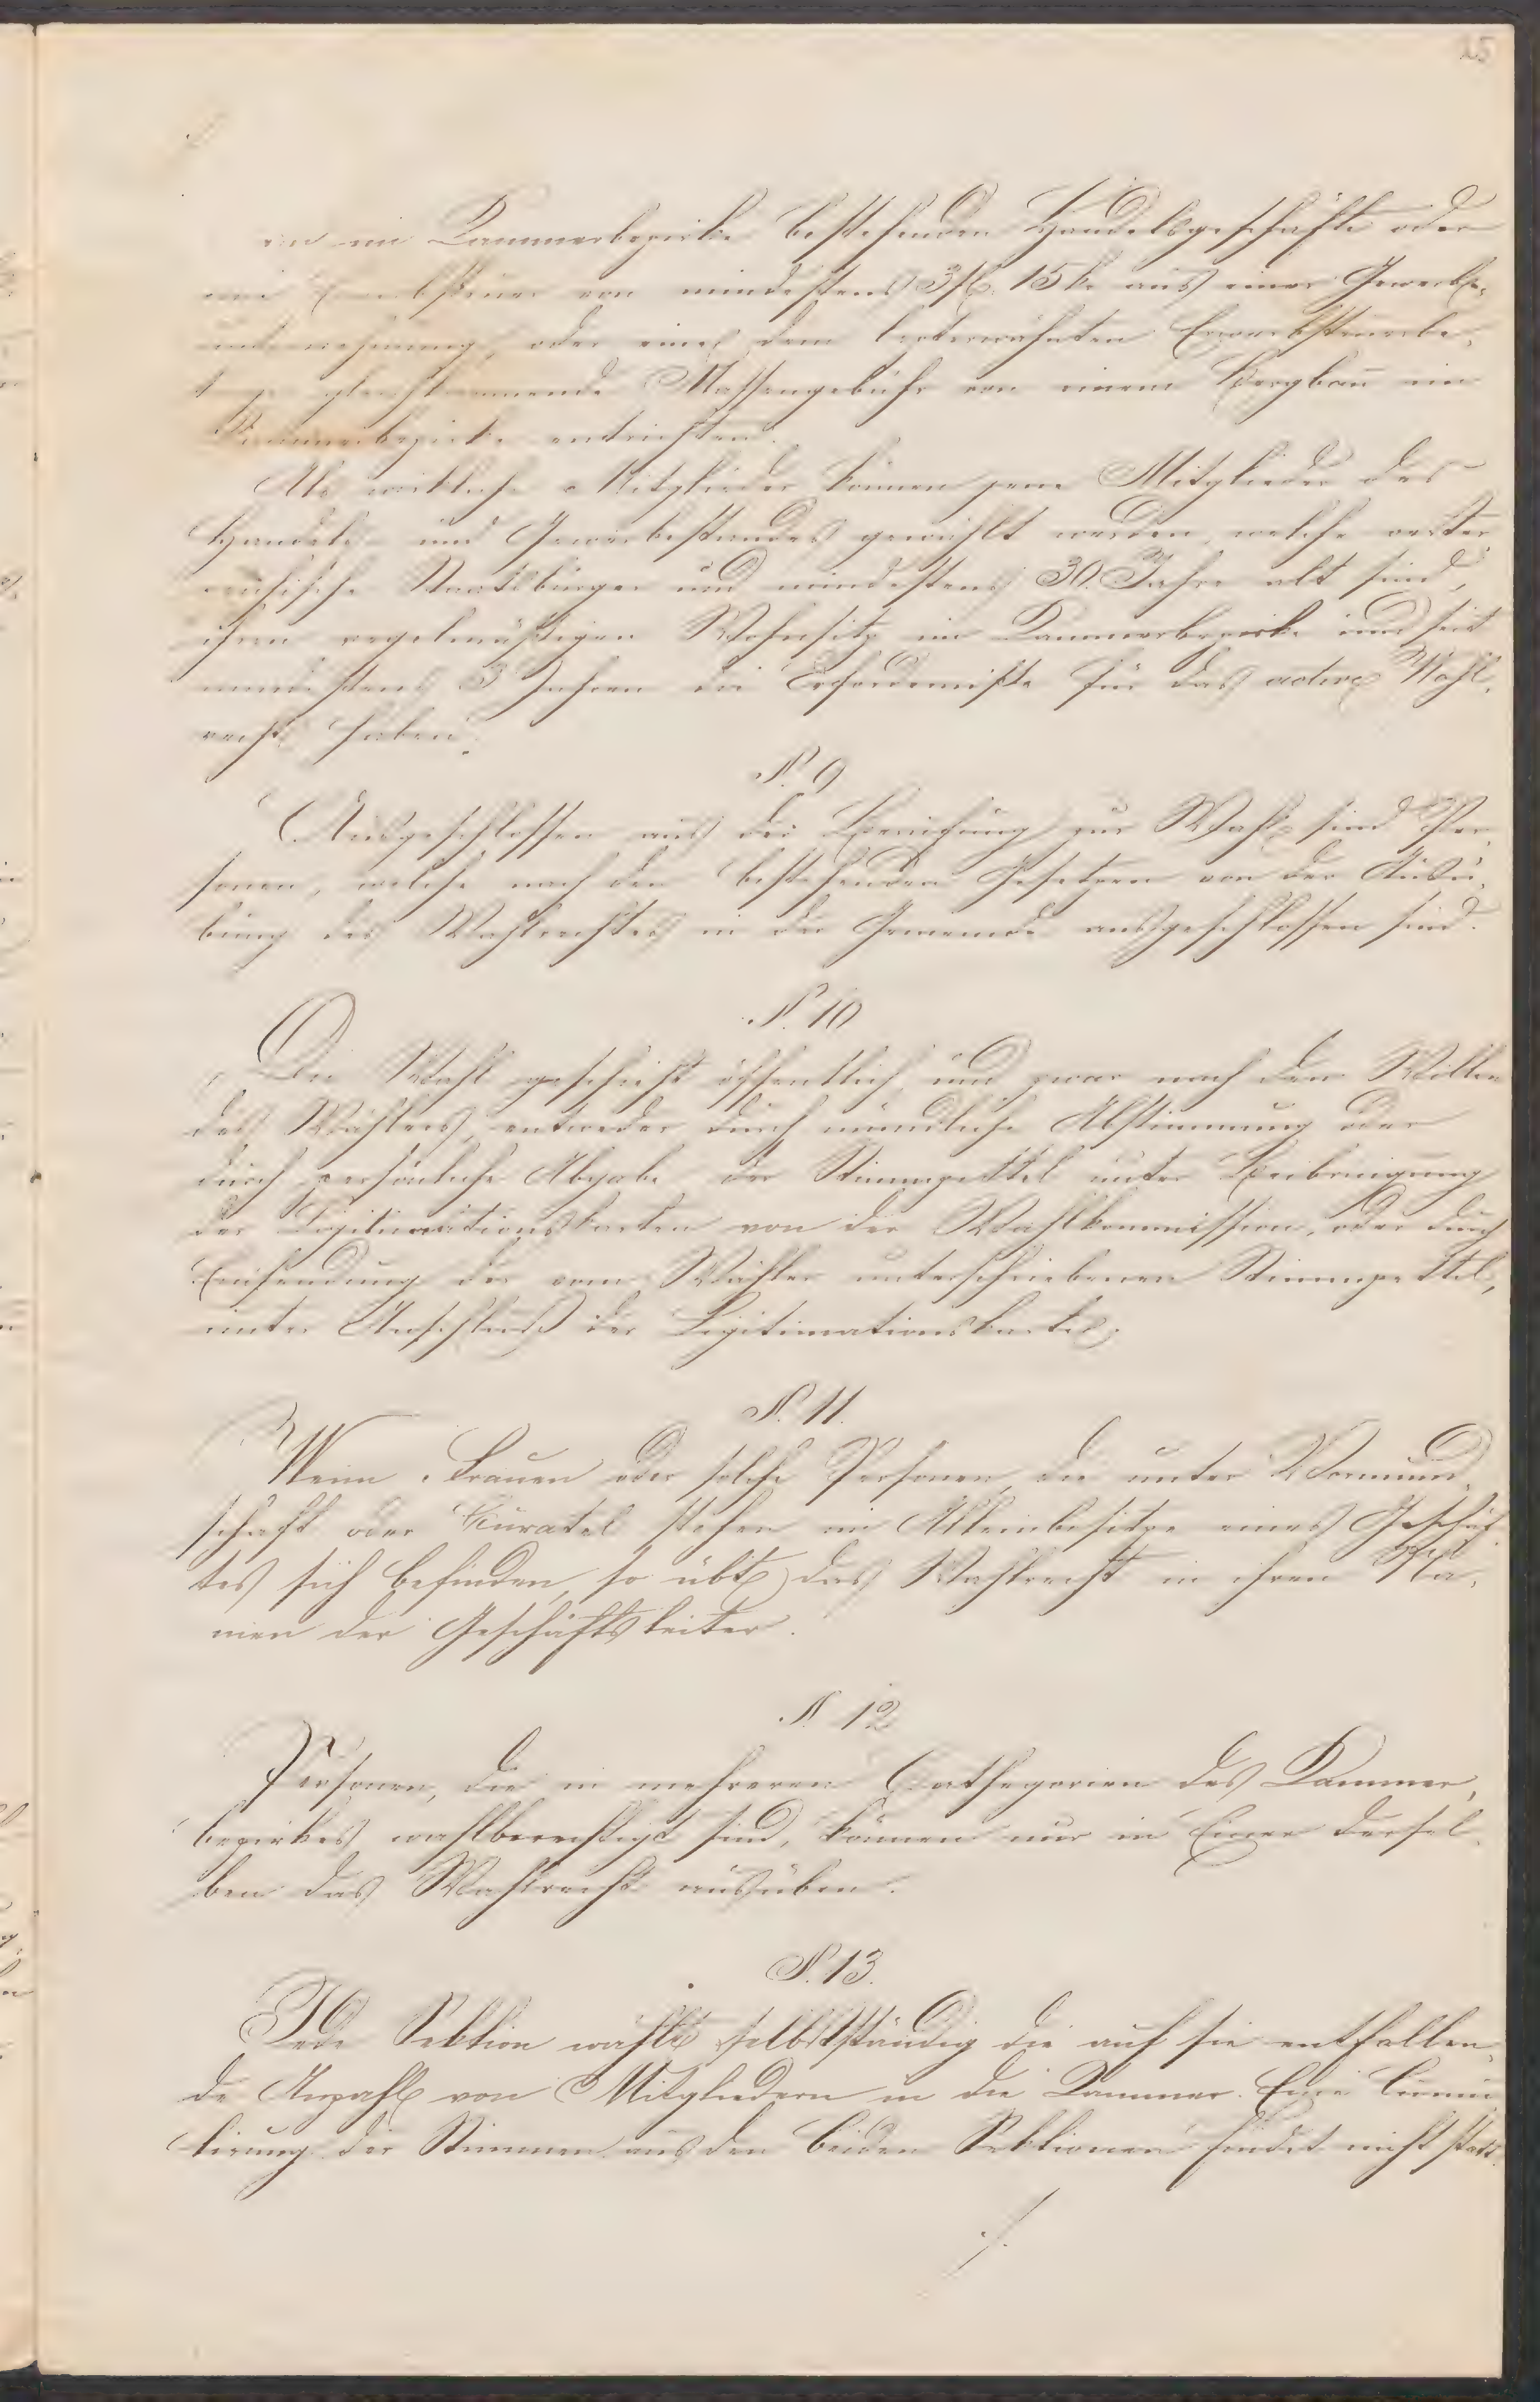 25
im Kammerbezirke bestehenden Handelsgeschäfte oder
eine Erwerbsteuer von mindestens 3 fl. 15 kr aus einer Gewerbs-
unternehmung, oder eine dem letterwähnten Erwerbsteuerbe-
trage gleichkommende Massengebühr von einem Bergbau im
Kammerbezirke entrichten.
Als wirkliche Mitglieder können jene Mitglieder des
Handels- und Gewerbestandes gewählt werden, welche oester-
reichische Staatsbürger und mindestens 30 Jahre alt sind,
ihren regelmäßigen Wohnsitz im Kammerbezirke und seit
mindestens 3 Jahren die Erfordernisse für das active Wahl-
recht haben.
§. 9
Ausgeschlossen aus der Berufung zur Wahl sind Per-
sonen, welche nach den bestehenden Gesetzen von der Ausü-
bung des Wahlrechtes in der Gemeinde ausgeschlossen sind.
§. 10
Die Wahl geschieht öffentlich und zwar nach dem Willen
des Wählers, entweder durch mündliche Abstimmung oder
durch persönliche Abgabe der Stimmzettel unter Beibringung
der Legitimationskarten von der Wahlkommission, oder durch
Einsendung der vom Wähler unterschriebenen Stimmzettel,
unter Anschluß der Legitimationskarte.
§. 11.
Wenn Frauen oder solche Personen, die unter Vormund-
schaft oder Kuratel stehen im Alleinbesitze eines Geschäf-
tes sich befinden, so übt das Wahlrecht in ihren Na-
men der Geschäftsleiter.
§. 12
Personen, die in mehreren Cathegorien des Kammer-
bezirkes wahlberechtigt sind, können nur in Einer dersel-
ben das Wahlrecht ausüben.
§. 13.
Jede Sektion wählt selbstständig die auf sie entfallen-
de Anzahl von Mitgliedern in die Kammer. Eine Cumu-
lirung der Stimmen aus den beiden Sektionen findet nicht statt.
./.